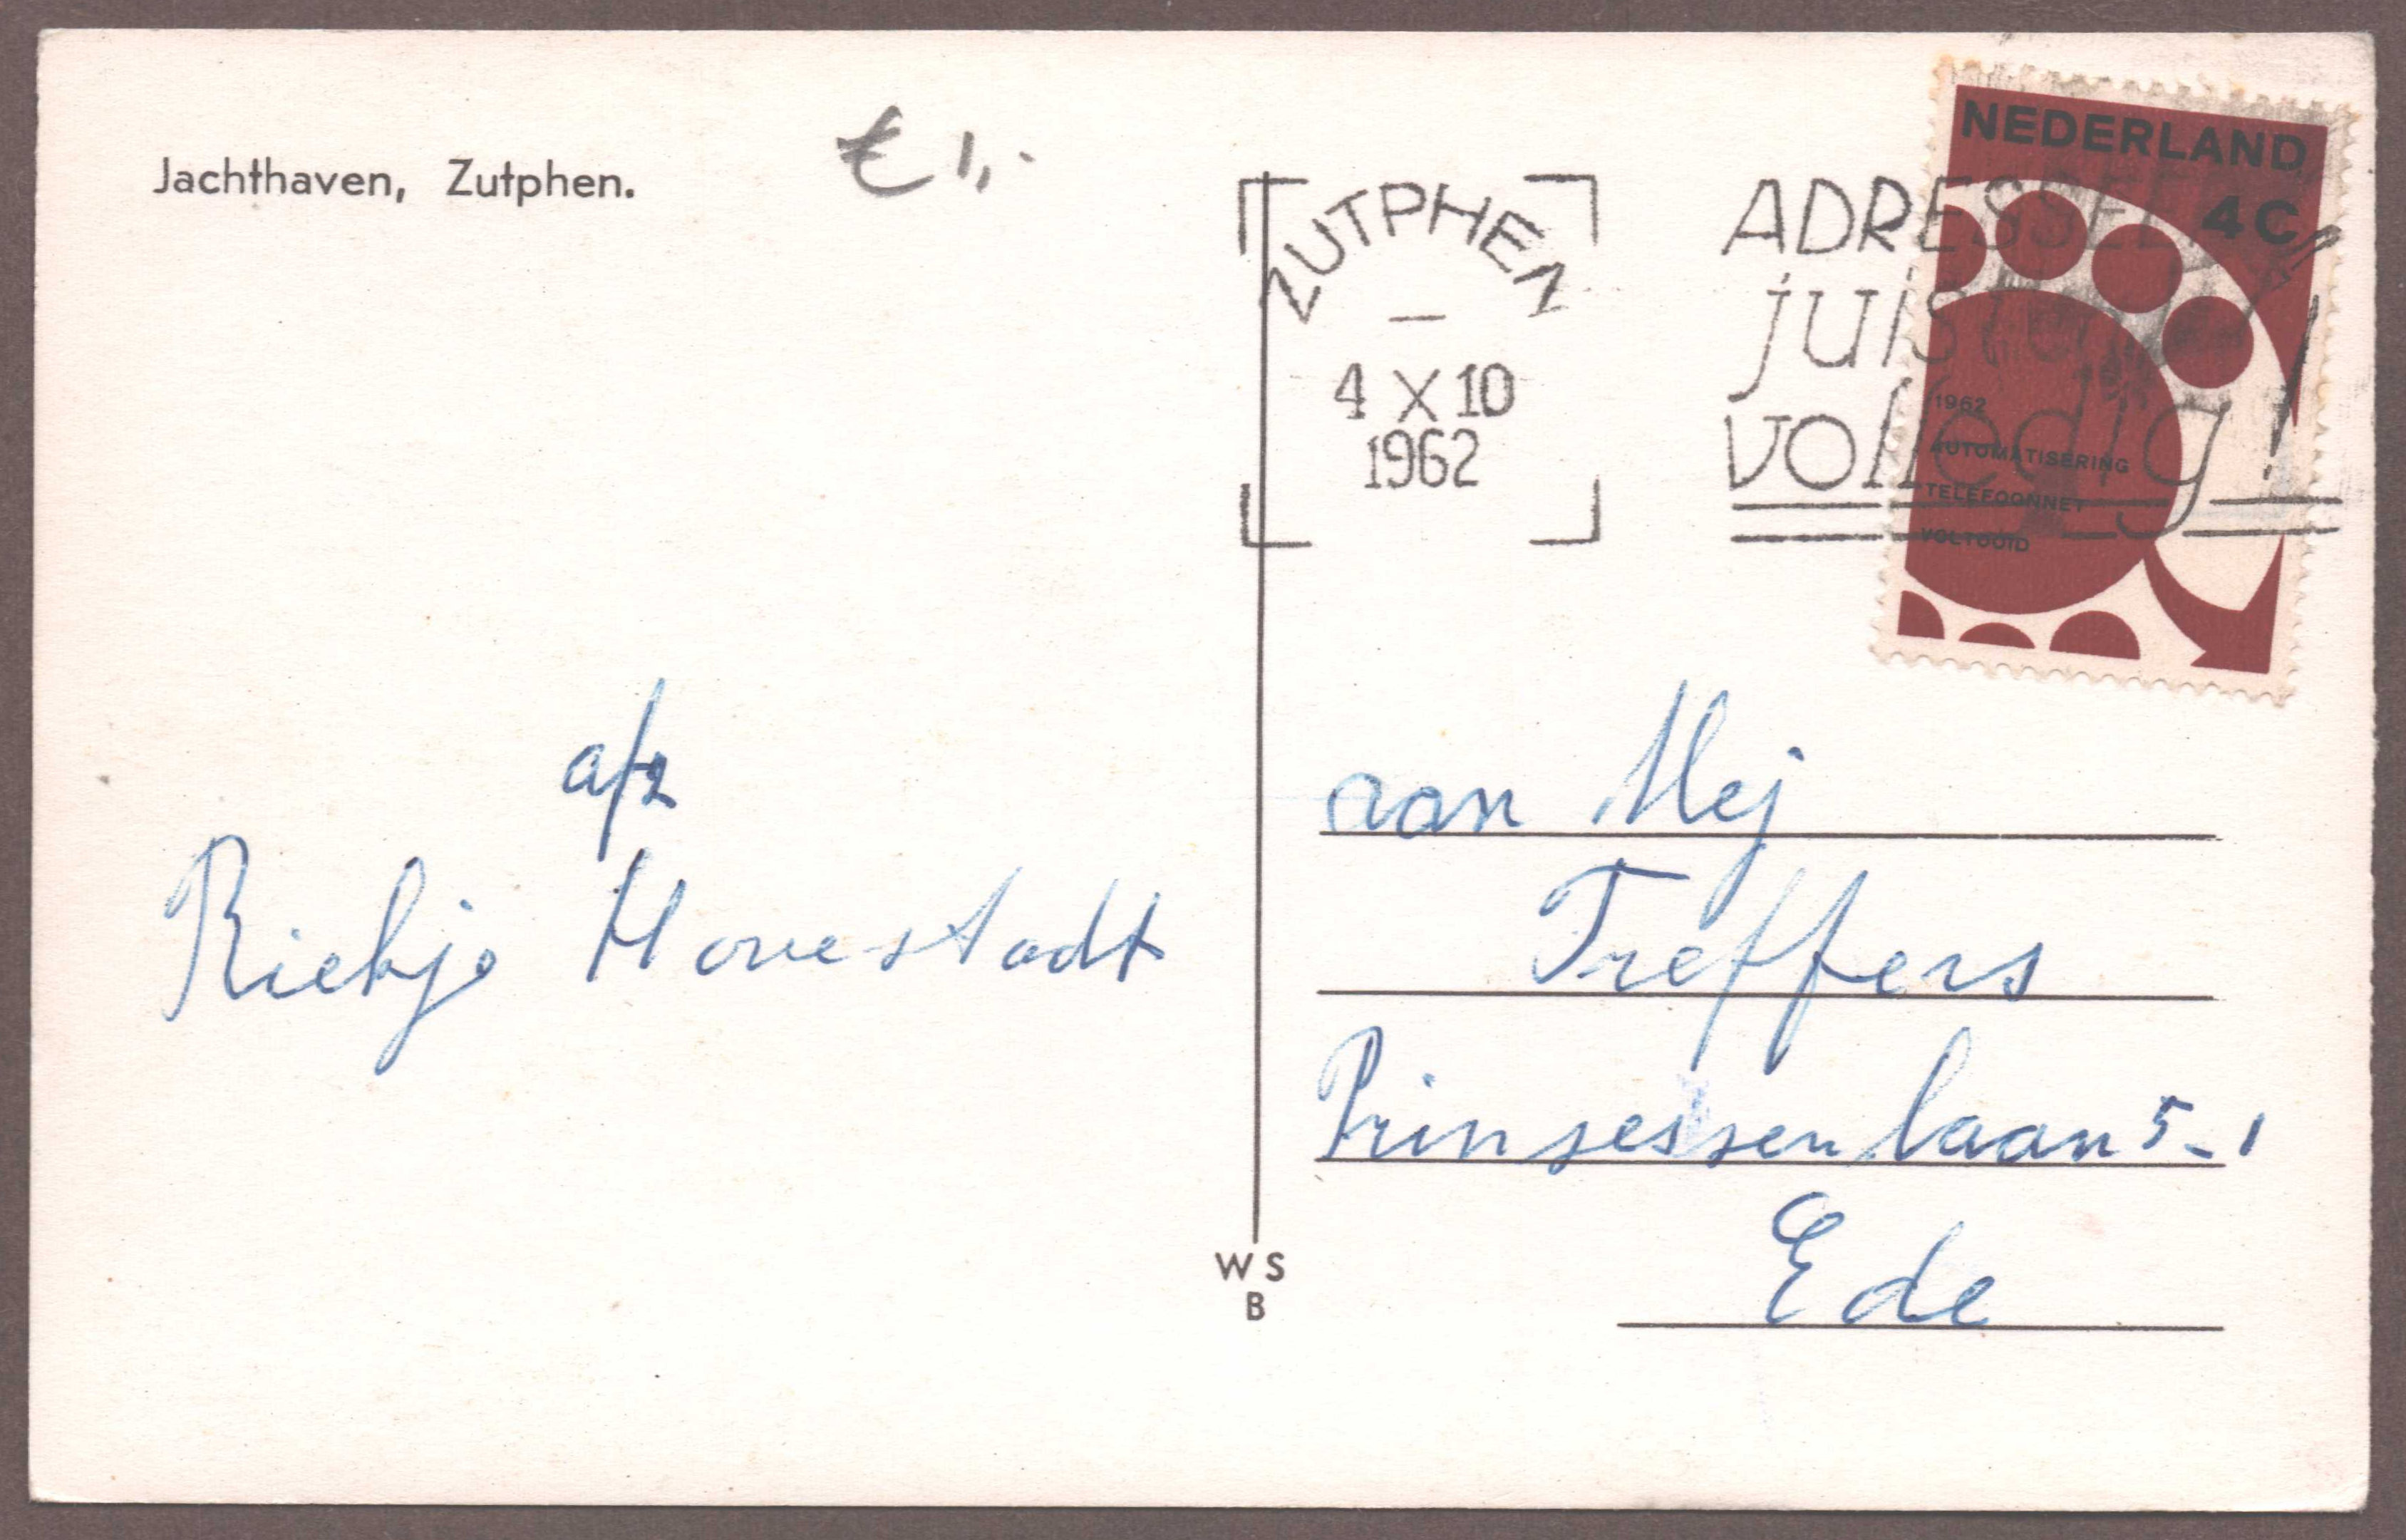 Jachthaven, Zutphen.
€ 1,-
ZUTPHEN
4 X 10
1962
ADRESSEER
juist en
volledig!
NEDERLAND
4 C
1962
AUTOMATISERING
TELEFOONNET
VOLTOOID
afz
Riekje Hovestadt
aan Mej
Treffers
Prinsessenlaan 5-1
Ede
W S
B